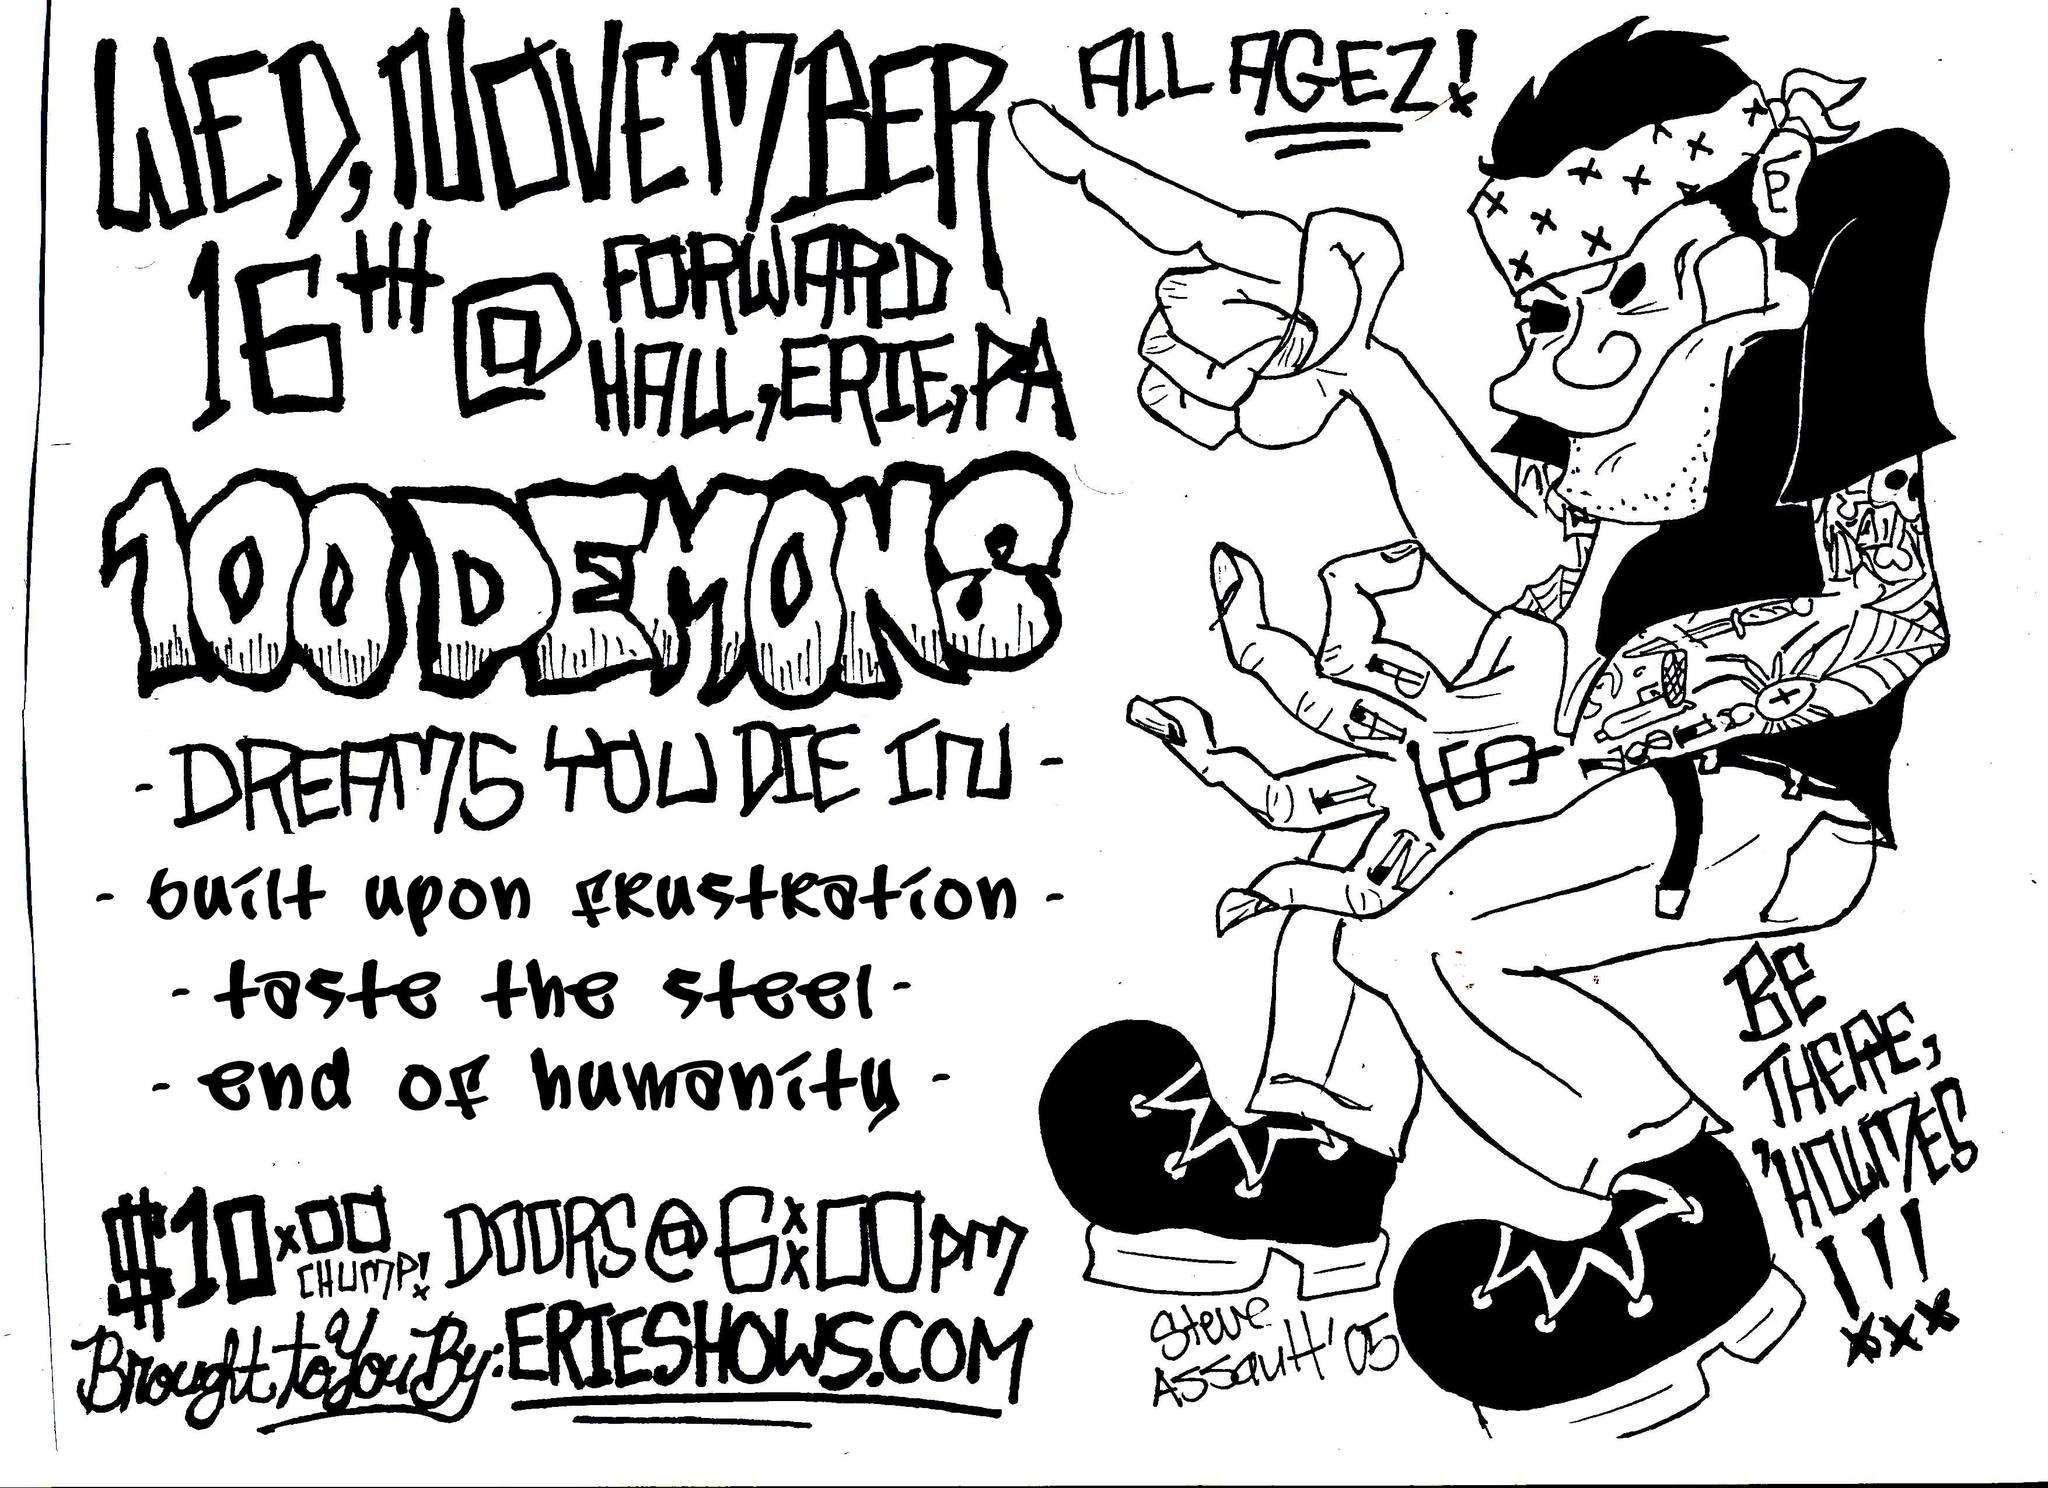 WED, NOVEMBER
16TH @ FORWARD
HALL, ERIE, PA
ALL AGEZ!
100 DEMONS
- DREAMS YOU DIE IN -
- built upon frustration -
- taste the steel -
- end of humanity -
$10.00
CHUMP!
DOORS @ 6:00PM
Brought to You By: ERIESHOWS.COM
PAIN
BE
THERE,
'HOLMES
!!!
xxx
Steve
Assault '05